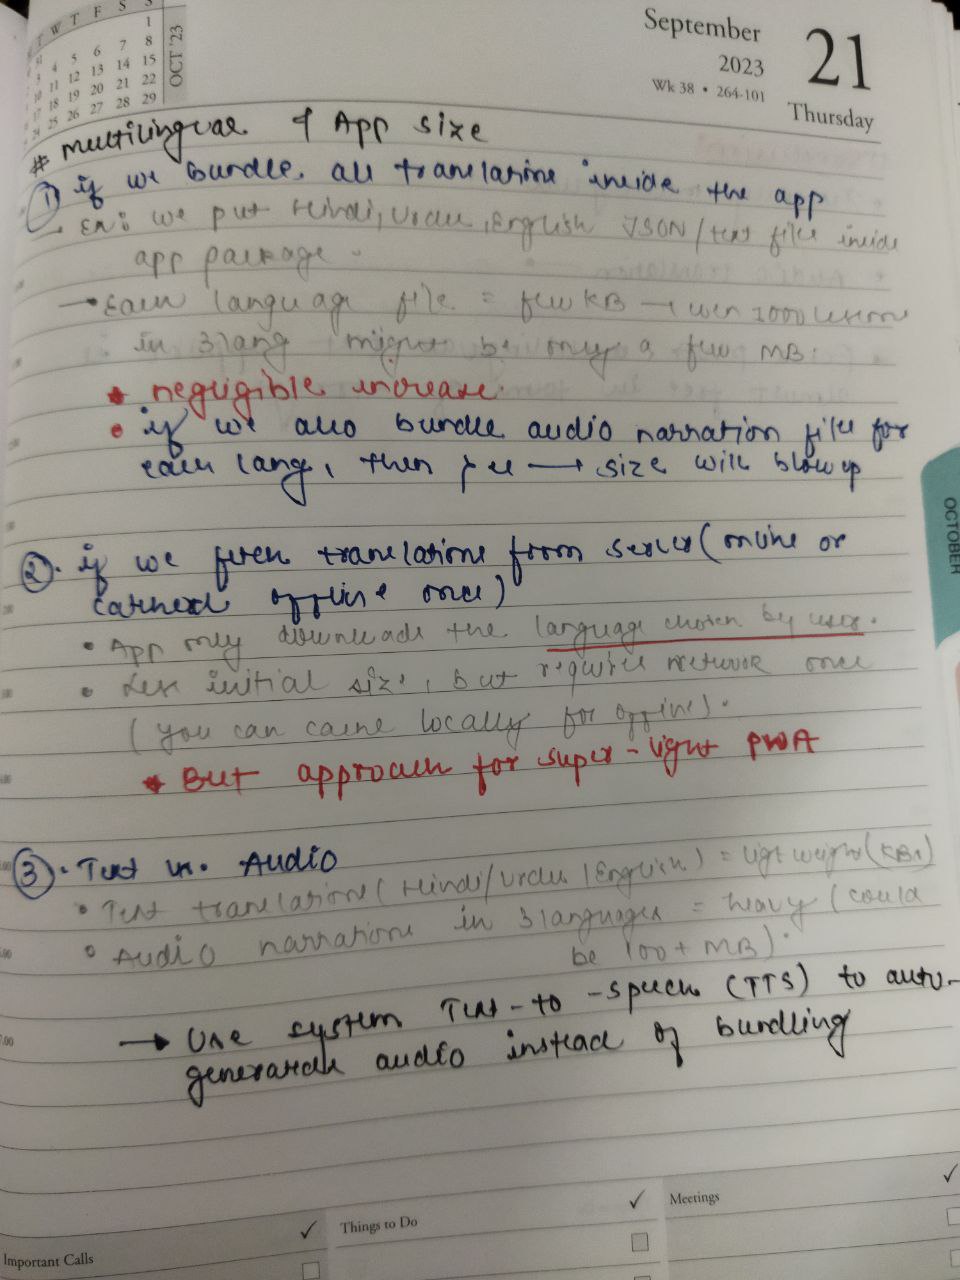 T W T F S S
1
4 5 6 7 8
10 11 12 13 14 15
17 18 19 20 21 22
24 25 26 27 28 29
OCT '23
September
2023
Wk 38 • 264-101
21
Thursday
# Multilingual & App size
1) if we bundle all translations inside the app
Ex: we put Hindi, Urdu, English JSON/text file inside
app package.
→ Each language file = few KB → even 1000 lessons
in 3 lang might be only a few MB.
negligible increase.
• if we also bundle audio narration file for
each lang, then → size will blow up
2. if we fetch translations from server (online or
cached offline once)
• App only downloads the language chosen by user.
• Less initial size, but requires network once
(you can cache locally for offline).
But approach for super-light PWA
3. Text vs. Audio
• Text translations (Hindi/Urdu/English) = light weight (KBs)
• Audio narrations in 3 languages = heavy (could
be 100+ MB).
→ Use system Text-to-speech (TTS) to auto-
generate audio instead of bundling
OCTOBER
Important Calls ✓
Things to Do ✓
Meetings ✓